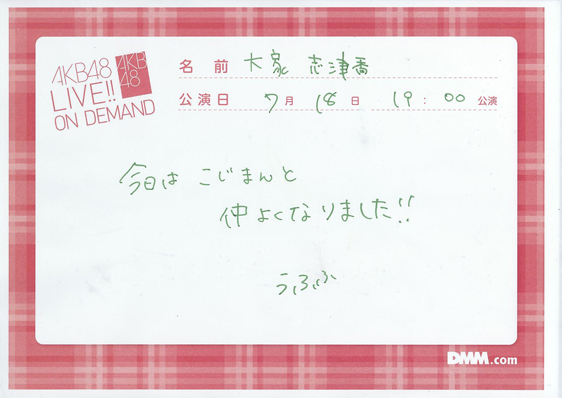 AKB48
LIVE!!
ON DEMAND
AKB
48
名前 大家 志津香
公演日 7月 18日 19:00 公演
今日は こじまんと
仲よくなりました!!
うふふ
DMM.com